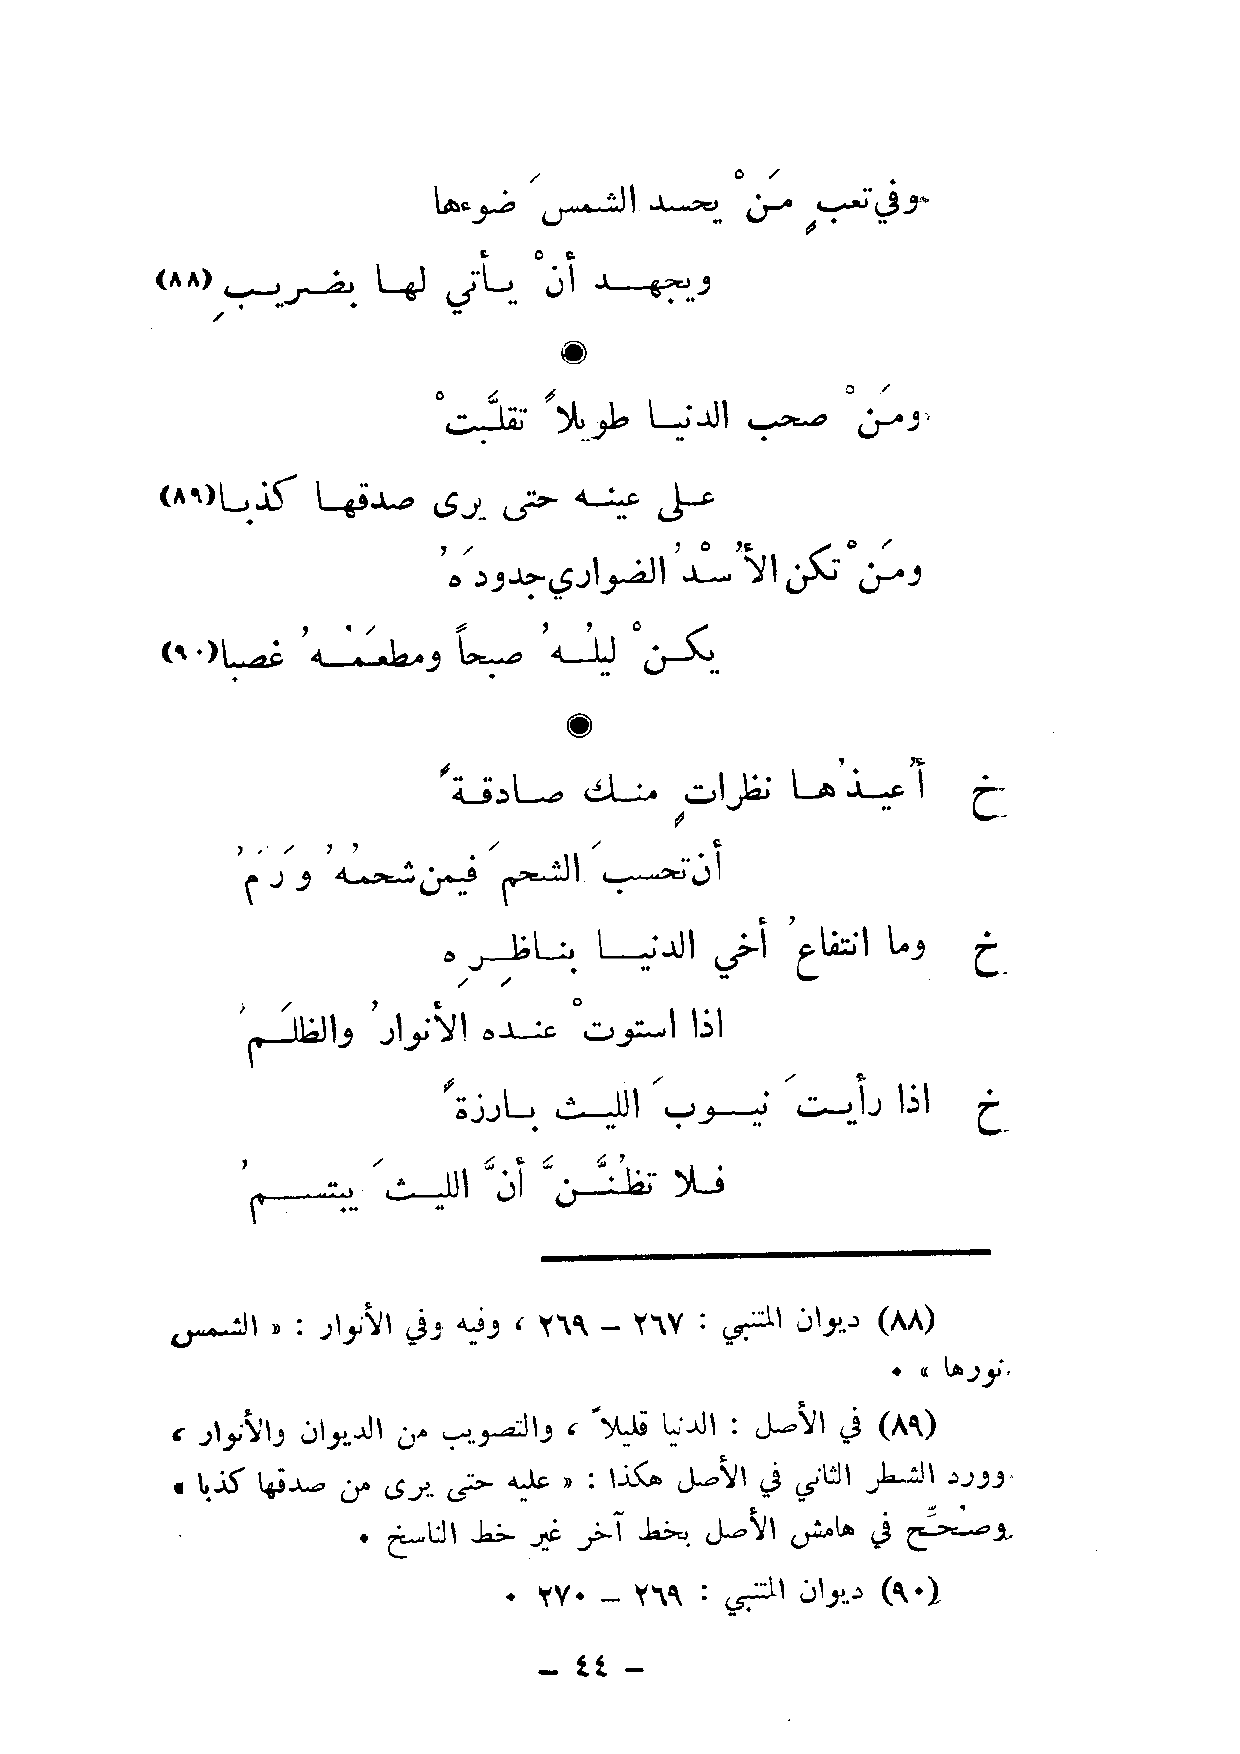 وفي تعبٍ مَنْ يحسد الشمسَ ضوءها
ويجهد أنْ يأتي لها بضريبِ (٨٨)
ومَنْ صحب الدنيا طويلاً تقلَّبتْ
على عينه حتى يرى صدقها كذبا (٨٩)
ومَنْ تكن الأُسْدُ الضواري جدودَهُ
يكنْ ليلُهُ صبحاً ومطعَمُهُ غصبا (٩٠)
خ أُعيذُها نظراتٍ منك صادقةً
أن تحسبَ الشحمَ فيمن شحمُهُ وَرَمُ
خ وما انتفاعُ أخي الدنيا بناظِرِهِ
اذا استوتْ عنده الأنوارُ والظلَمُ
خ اذا رأيتَ نيوبَ الليث بارزةً
فلا تظُنَّنَّ أنَّ الليثَ يبتسمُ
(٨٨) ديوان المتنبي : ٢٦٧ – ٢٦٩ ، وفيه وفي الأنوار : « الشمس
نورها » ٠
(٨٩) في الأصل : الدنيا قليلاً ، والتصويب من الديوان والأنوار ،
وورد الشطر الثاني في الأصل هكذا : « عليه حتى يرى من صدقها كذبا »
وصُحِّح في هامش الأصل بخط آخر غير خط الناسخ ٠
(٩٠) ديوان المتنبي : ٢٦٩ – ٢٧٠ ٠
– ٤٤ –